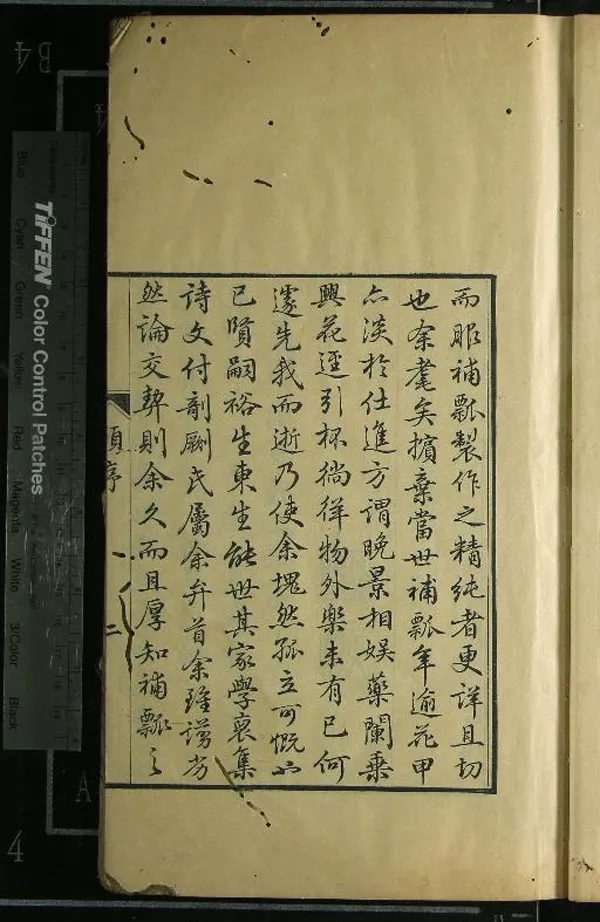 而服補瓢製作之精純者更詳且切
也余耄矣擯棄當世補瓢年逾花甲
亦淡於仕進方謂晚景相娛藥闌乗
興花逕引杯徜徉物外樂未有已何
遽先我而逝乃使余塊然孤立可慨也
已賢嗣裕生東生能世其家學裒集
詩文付剞劂氏屬余弁首余雖譾劣
然論交契則余久而且厚知補瓢之
序
二
TIFFEN Color Control Patches
Blue
Cyan
Green
Yellow
Red
Magenta
White
3/Color
Black
B4
A
4